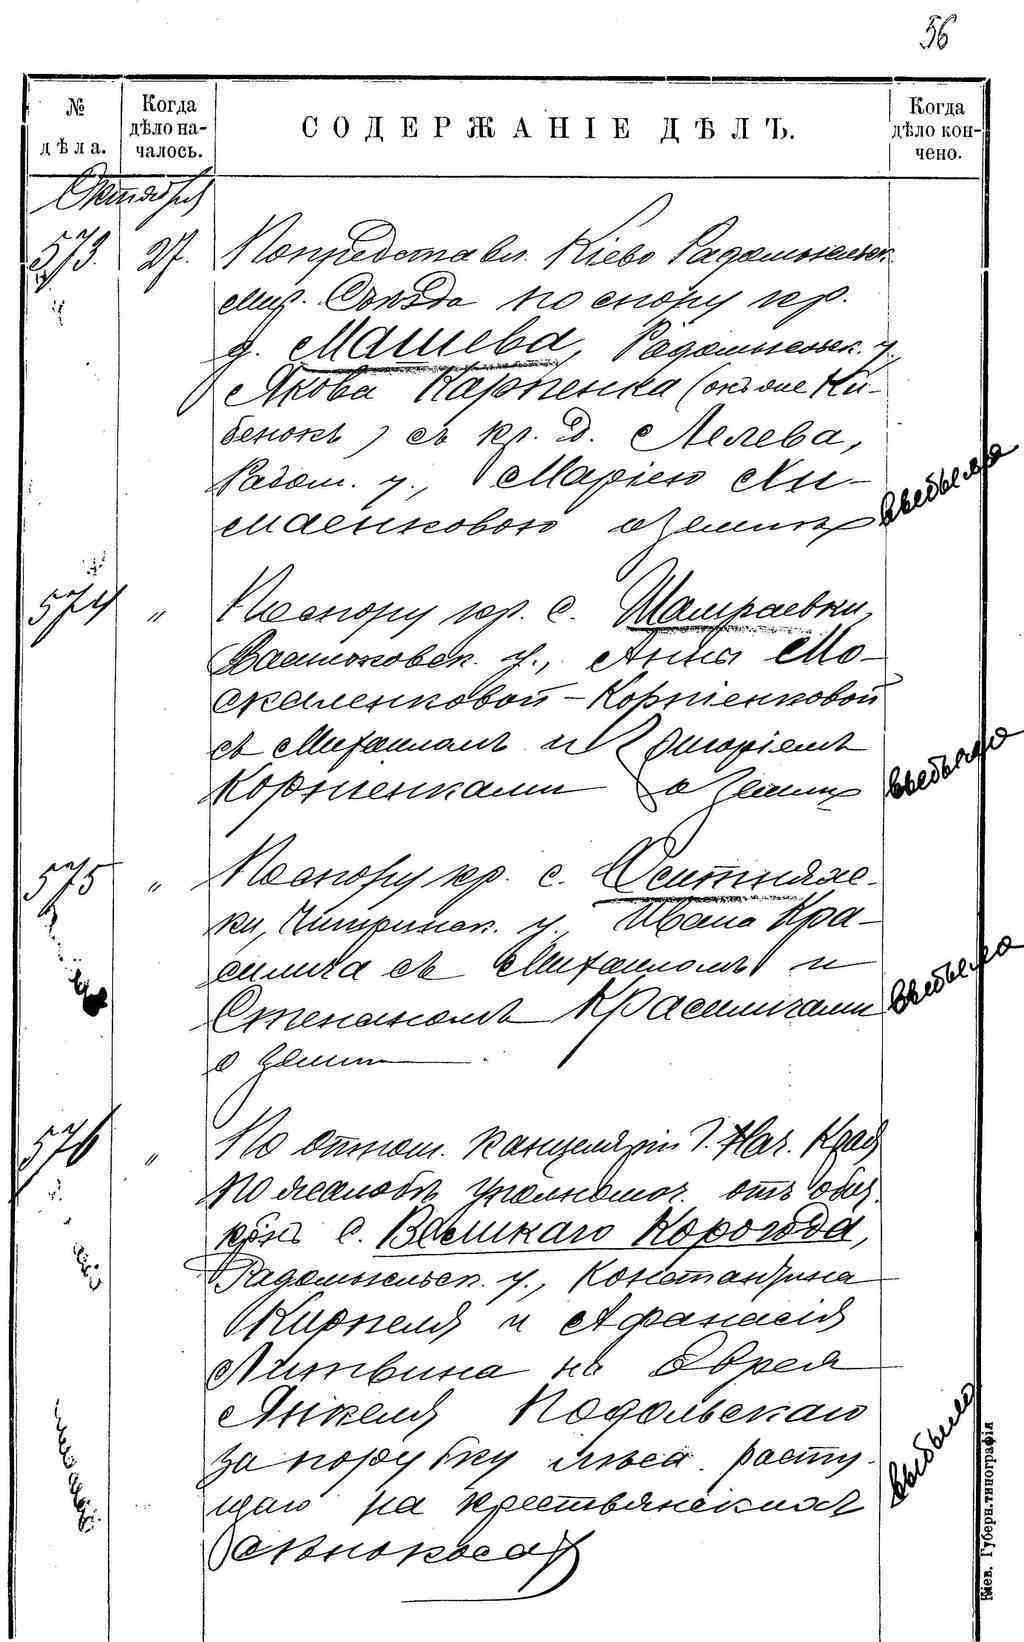 56
№ дѣла.
Когда дѣло началось.
СОДЕРЖАНІЕ ДѢЛЪ.
Когда дѣло кончено.
Октября
573. 27. По представл. Кіево Радомысльск.
Мир. Съѣзда по спору кр.
д. Машева, Радомысльск. у.,
Якова Карпенка (онъ же Ки-
бенокъ) съ кр. д. Лелева,
Радом. у., Маріею
о землѣ
выбыло
574 " По спору кр. с. Шамраевки,
Васильковск. у., Анны Мо-
скаленковой-Корніенковой
съ Михаиломъ и Григоріемъ
Корніенками о землѣ
выбыло
575 " По спору кр. с. Оситняж-
ки, Чигиринск. у., Ивана Кра-
силича съ Михаиломъ и
Степаномъ Красиличами
о землѣ
выбыло
576 " По отнош. Канцеляріи Г. Нач. Края
по жалобѣ уполномоч. отъ общ.
крѣнъ с. Великаго Корогода,
Радомысльск. у., Константина
Кирпеля и Афанасія
Литвина на Еврея
Янкеля Подольскаго
за порубку лѣса, расту-
щаго на крестьянскихъ
сѣнокосахъ
выбыло
Кіев. Губерн. типографія